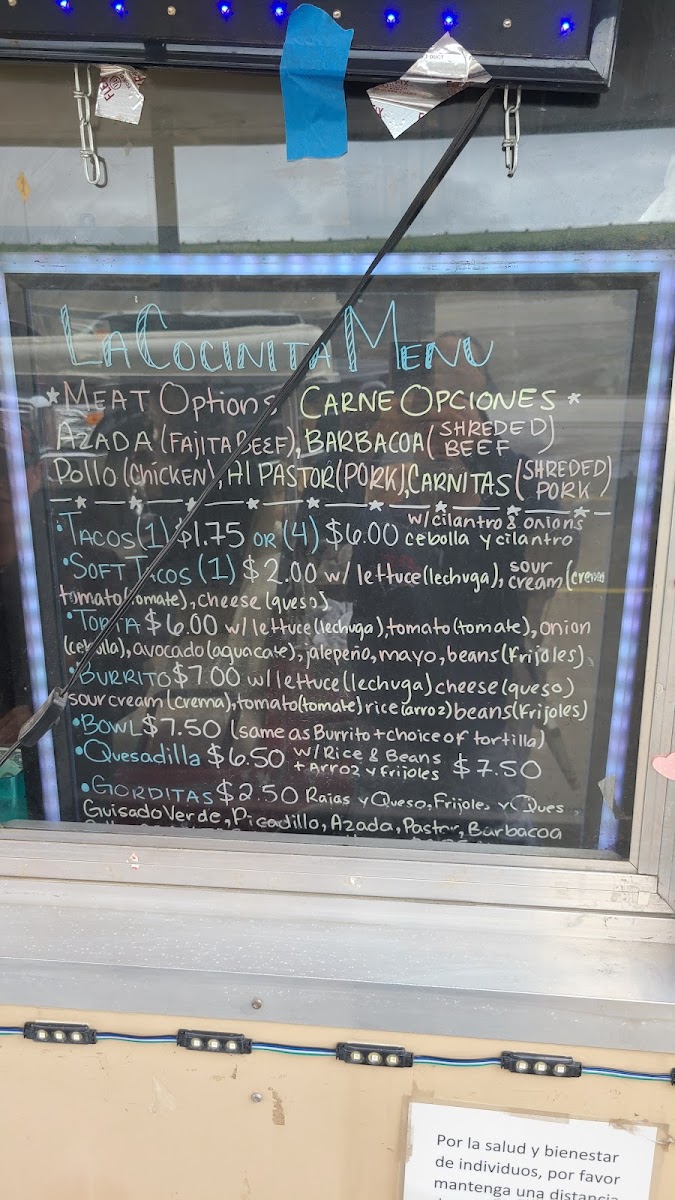 La Cocinita Menu
*Meat Options Carne Opciones*
Azada (Fajita Beef), Barbacoa (Shreded Beef)
Pollo (Chicken), Al Pastor (Pork), Carnitas (Shreded Pork)
• Tacos (1) $1.75 or (4) $6.00 w/cilantro & onions cebolla y cilantro
• Soft Tacos (1) $2.00 w/ lettuce (lechuga), sour cream (crema)
tomato (tomate), cheese (queso)
• Torta $6.00 w/ lettuce (lechuga), tomato (tomate), onion
(cebolla), avocado (aguacate), jalepeño, mayo, beans (frijoles)
• Burrito $7.00 w/ lettuce (lechuga) cheese (queso)
sour cream (crema), tomato (tomate) rice (arroz) beans (frijoles)
• Bowl $7.50 (same as Burrito + choice of tortilla)
• Quesadilla $6.50 w/ Rice & Beans + Arroz y frijoles $7.50
• Gorditas $2.50 Rajas y Queso, Frijoles y Ques
Guisado Verde, Picadillo, Azada, Pastor, Barbacoa
Por la salud y bienestar
de individuos, por favor
mantenga una distancia